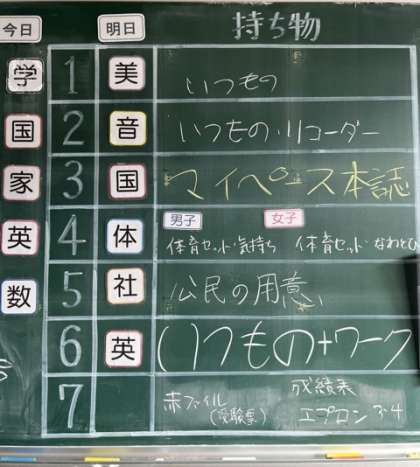 今日 明日 持ち物
学 1 美 いつもの
国 2 音 いつもの・リコーダー
家 3 国 マイペース本誌
男子 女子
英 4 体 体育セット・気持ち 体育セット・なわとび
数 5 社 公民の用意
6 英 いつもの+ワーク
7 赤ファイル 成績表
(受験票) エプロン 3-4